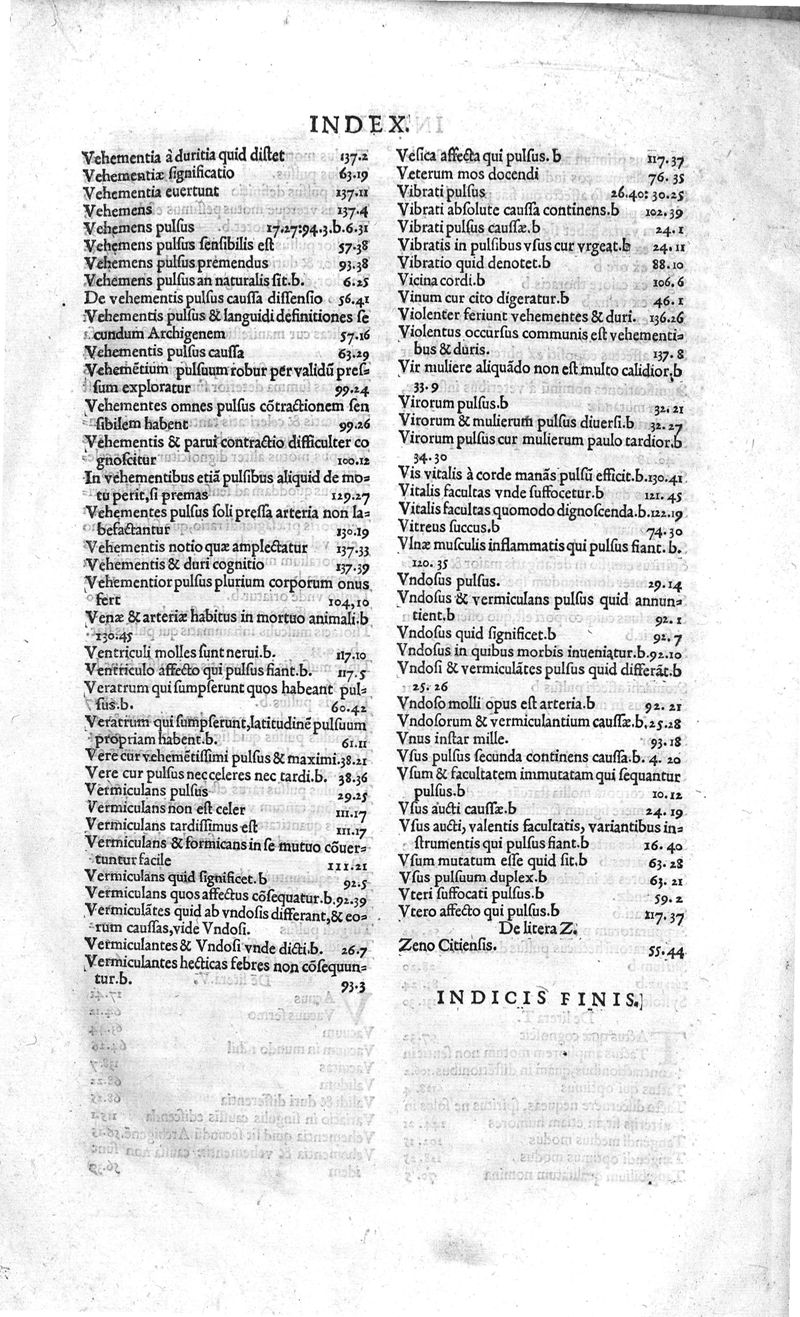 INDEX.
Vehementia à duritia quid distet 137.2
Vehementiæ significatio 63.19
Vehementia euertunt 137.11
Vehemens 137.4
Vehemens pulsus 17.27:94.3.b.6.31
Vehemens pulsus sensibilis est 57.38
Vehemens pulsus premendus 93.38
Vehemens pulsus an naturalis sit.b. 6.25
De vehementis pulsus caussa dissensio 56.41
Vehementis pulsus & languidi definitiones se
cundum Archigenem 57.16
Vehementis pulsus caussa 63.29
Vehemẽtium pulsuum robur per validũ pres=
sum exploratur 99.24
Vehementes omnes pulsus cõtractionem sen
sibilem habent 99.26
Vehementis & parui contractio difficulter co
gnoscitur 100.12
In vehementibus etiã pulsibus aliquid de mo=
tu perit, si premas 129.27
Vehementes pulsus soli pressa arteria non la=
befactantur 130.19
Vehementis notio quæ amplectatur 137.33
Vehementis & duri cognitio 137.39
Vehementior pulsus plurium corporum onus
fert 104,10
Venæ & arteriæ habitus in mortuo animali.b
130.45
Ventriculi molles sunt nerui.b. 117.10
Ventriculo affecto qui pulsus fiant.b. 117.5
Veratrum qui sumpserunt quos habeant pul=
sus.b. 60.42
Veratrum qui sumpserunt, latitudinẽ pulsuum
propriam habent.b. 61.11
Vere cur vehemẽtissimi pulsus & maximi. 38.21
Vere cur pulsus nec celeres nec tardi.b. 38.36
Vermiculans pulsus 29.25
Vermiculans non est celer 111.17
Vermiculans tardissimus est 111.17
Vermiculans & formicans in se mutuo cõuer=
tuntur facile 111.21
Vermiculans quid significet.b 92.5
Vermiculans quos affectus cõsequatur.b.92.39
Vermiculãtes quid ab vndosis differant, & eo=
rum caussas, vide Vndosi.
Vermiculantes & Vndosi vnde dicti.b. 26.7
Vermiculantes hecticas febres non cõsequun=
tur.b. 93.3
Vesica affecta qui pulsus. b 117.37
Veterum mos docendi 76.35
Vibrati pulsus 26.40: 30.25
Vibrati absolute caussa continens.b 102.39
Vibrati pulsus caussæ.b 24.1
Vibratis in pulsibus vsus cur vrgeat.b 24.11
Vibratio quid denotet.b 88.10
Vicina cordi.b 106.6
Vinum cur cito digeratur.b 46.1
Violenter feriunt vehementes & duri. 136.26
Violentus occursus communis est vehementi=
bus & duris. 137.8
Vir muliere aliquãdo non est multo calidior.b
33.9
Virorum pulsus.b 32.21
Virorum & mulierum pulsus diuersi.b 32.27
Virorum pulsus cur mulierum paulo tardior.b
34.30
Vis vitalis à corde manãs pulsũ efficit.b.130.41
Vitalis facultas vnde suffocetur.b 121.45
Vitalis facultas quomodo dignoscenda.b.122.19
Vitreus succus.b 74.30
Vlnæ musculis inflammatis qui pulsus fiant. b.
120.35
Vndosus pulsus. 29.14
Vndosus & vermiculans pulsus quid annun=
tient.b 92.1
Vndosus quid significet.b 92.7
Vndosus in quibus morbis inueniatur.b.92.10
Vndosi & vermiculãtes pulsus quid differãt.b
25.26
Vndoso molli opus est arteria.b 92.21
Vndosorum & vermiculantium caussæ.b.25.28
Vnus instar mille. 93.18
Vsus pulsus secunda continens caussa.b. 4.20
Vsum & facultatem immutatam qui sequantur
pulsus.b 10.12
Vsus aucti caussæ.b 24.19
Vsus aucti, valentis facultatis, variantibus in=
strumentis qui pulsus fiant.b 16.40
Vsum mutatum esse quid sit.b 63.28
Vsus pulsuum duplex.b 63.21
Vteri suffocati pulsus.b 59.2
Vtero affecto qui pulsus.b 117.37
De litera Z.
Zeno Citiensis. 55.44
INDICIS FINIS.